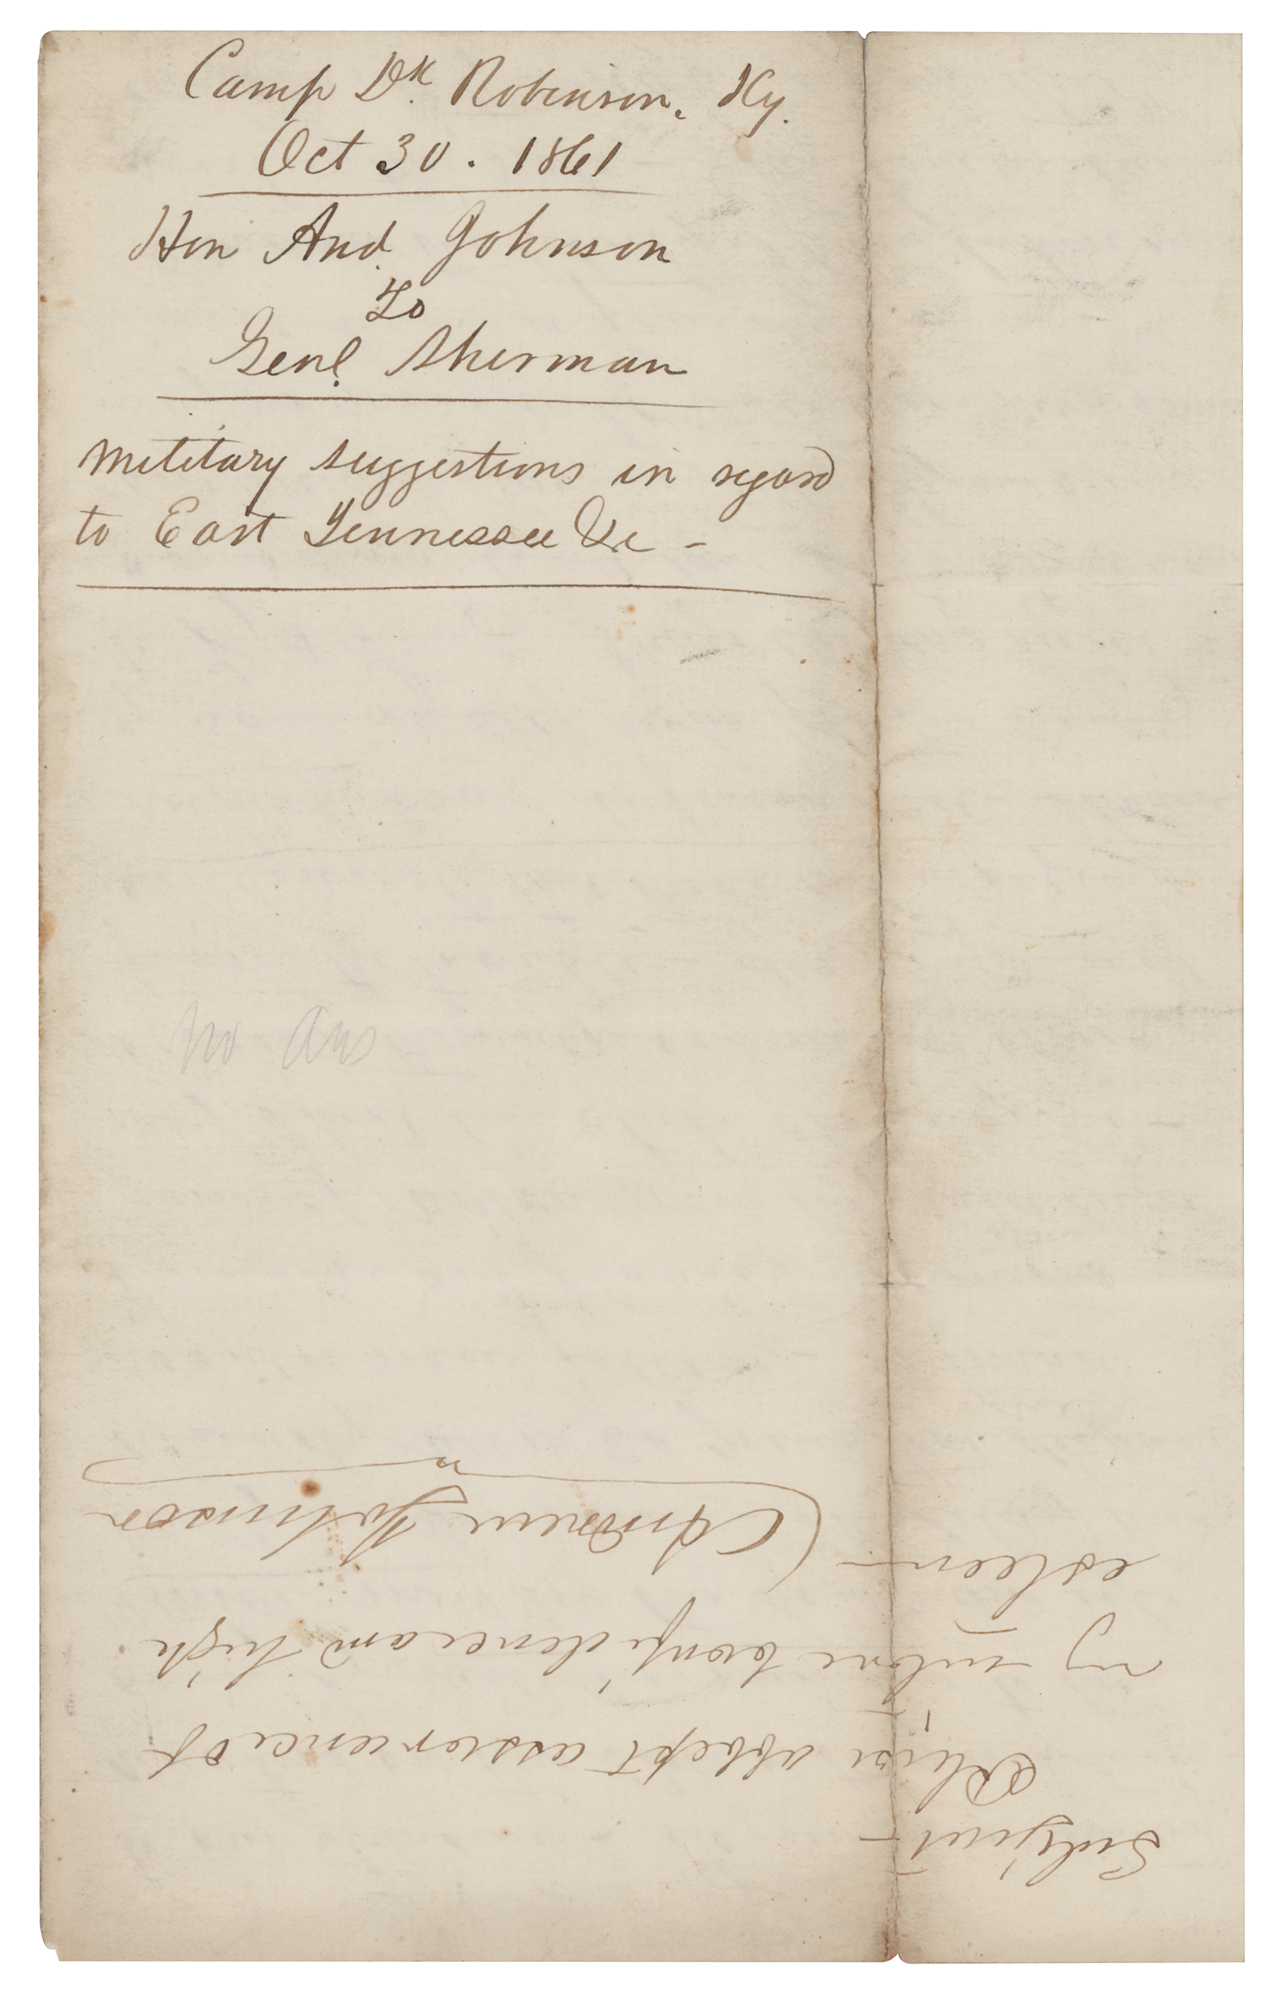 Camp Dk. Robinson, Ky.
Oct 30. 1861
Hon And. Johnson
To
Genl. Sherman
Military suggestions in regard
to East Tennessee &c -
no Ans
Subject -
Please accept assurance of
my entire confidence and high
esteem -
Andrew Johnson